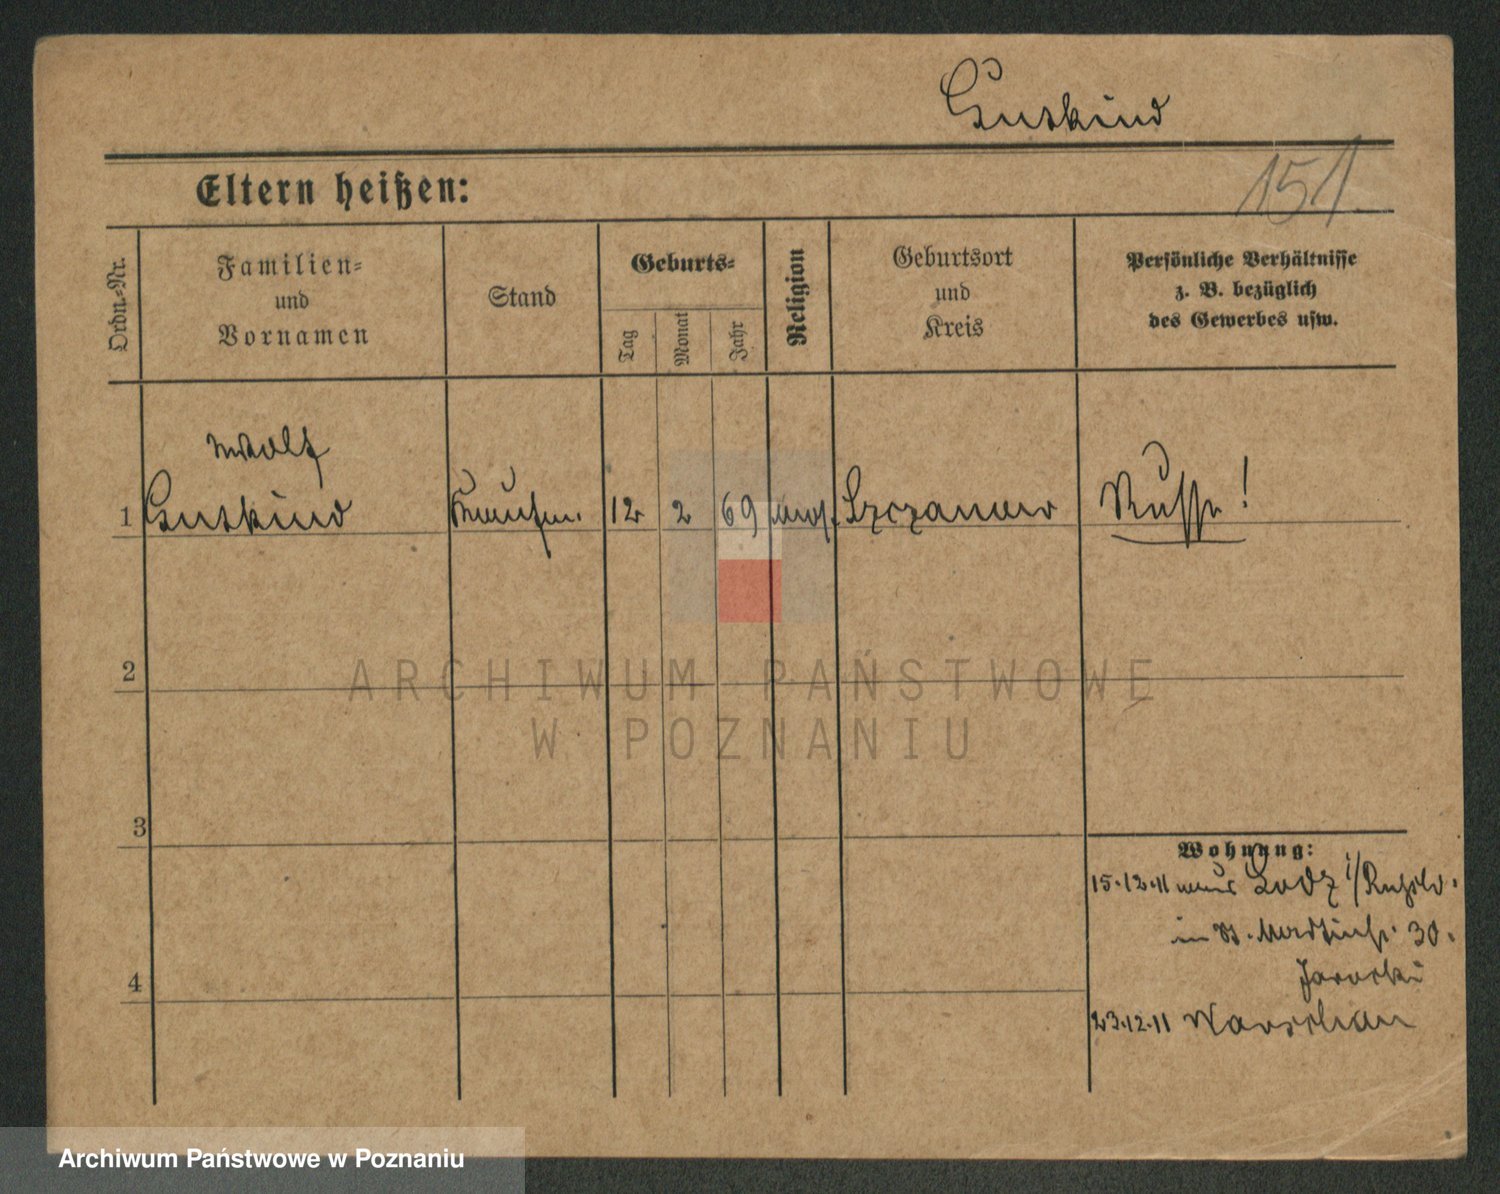 Gutkind
151.
Eltern heißen:
Ordn.-Nr.
Familien-
und
Vornamen
Stand
Geburts-
Tag
Monat
Jahr
Religion
Geburtsort
und
Kreis
Persönliche Verhältnisse
z. B. bezüglich
des Gewerbes usw.
Wolf
1 Gutkind Kaufm. 12 2 69 mos. Russe!
2
3
4
Wohnung:
15.12.11 aus Lodz i/Rußld.
in St. Martinstr. 30.
Jarocki
23.12.11 Warschau
ARCHIWUM PAŃSTWOWE
W POZNANIU
Archiwum Państwowe w Poznaniu